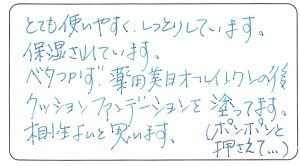 とても使いやすく、しっとりしています。
保湿されています。
ベタつかず、薬用美白オールインワンの後
クッションファンデーションを塗ってます。
相性よいと思います。
(ポンポンと
押さえて...)